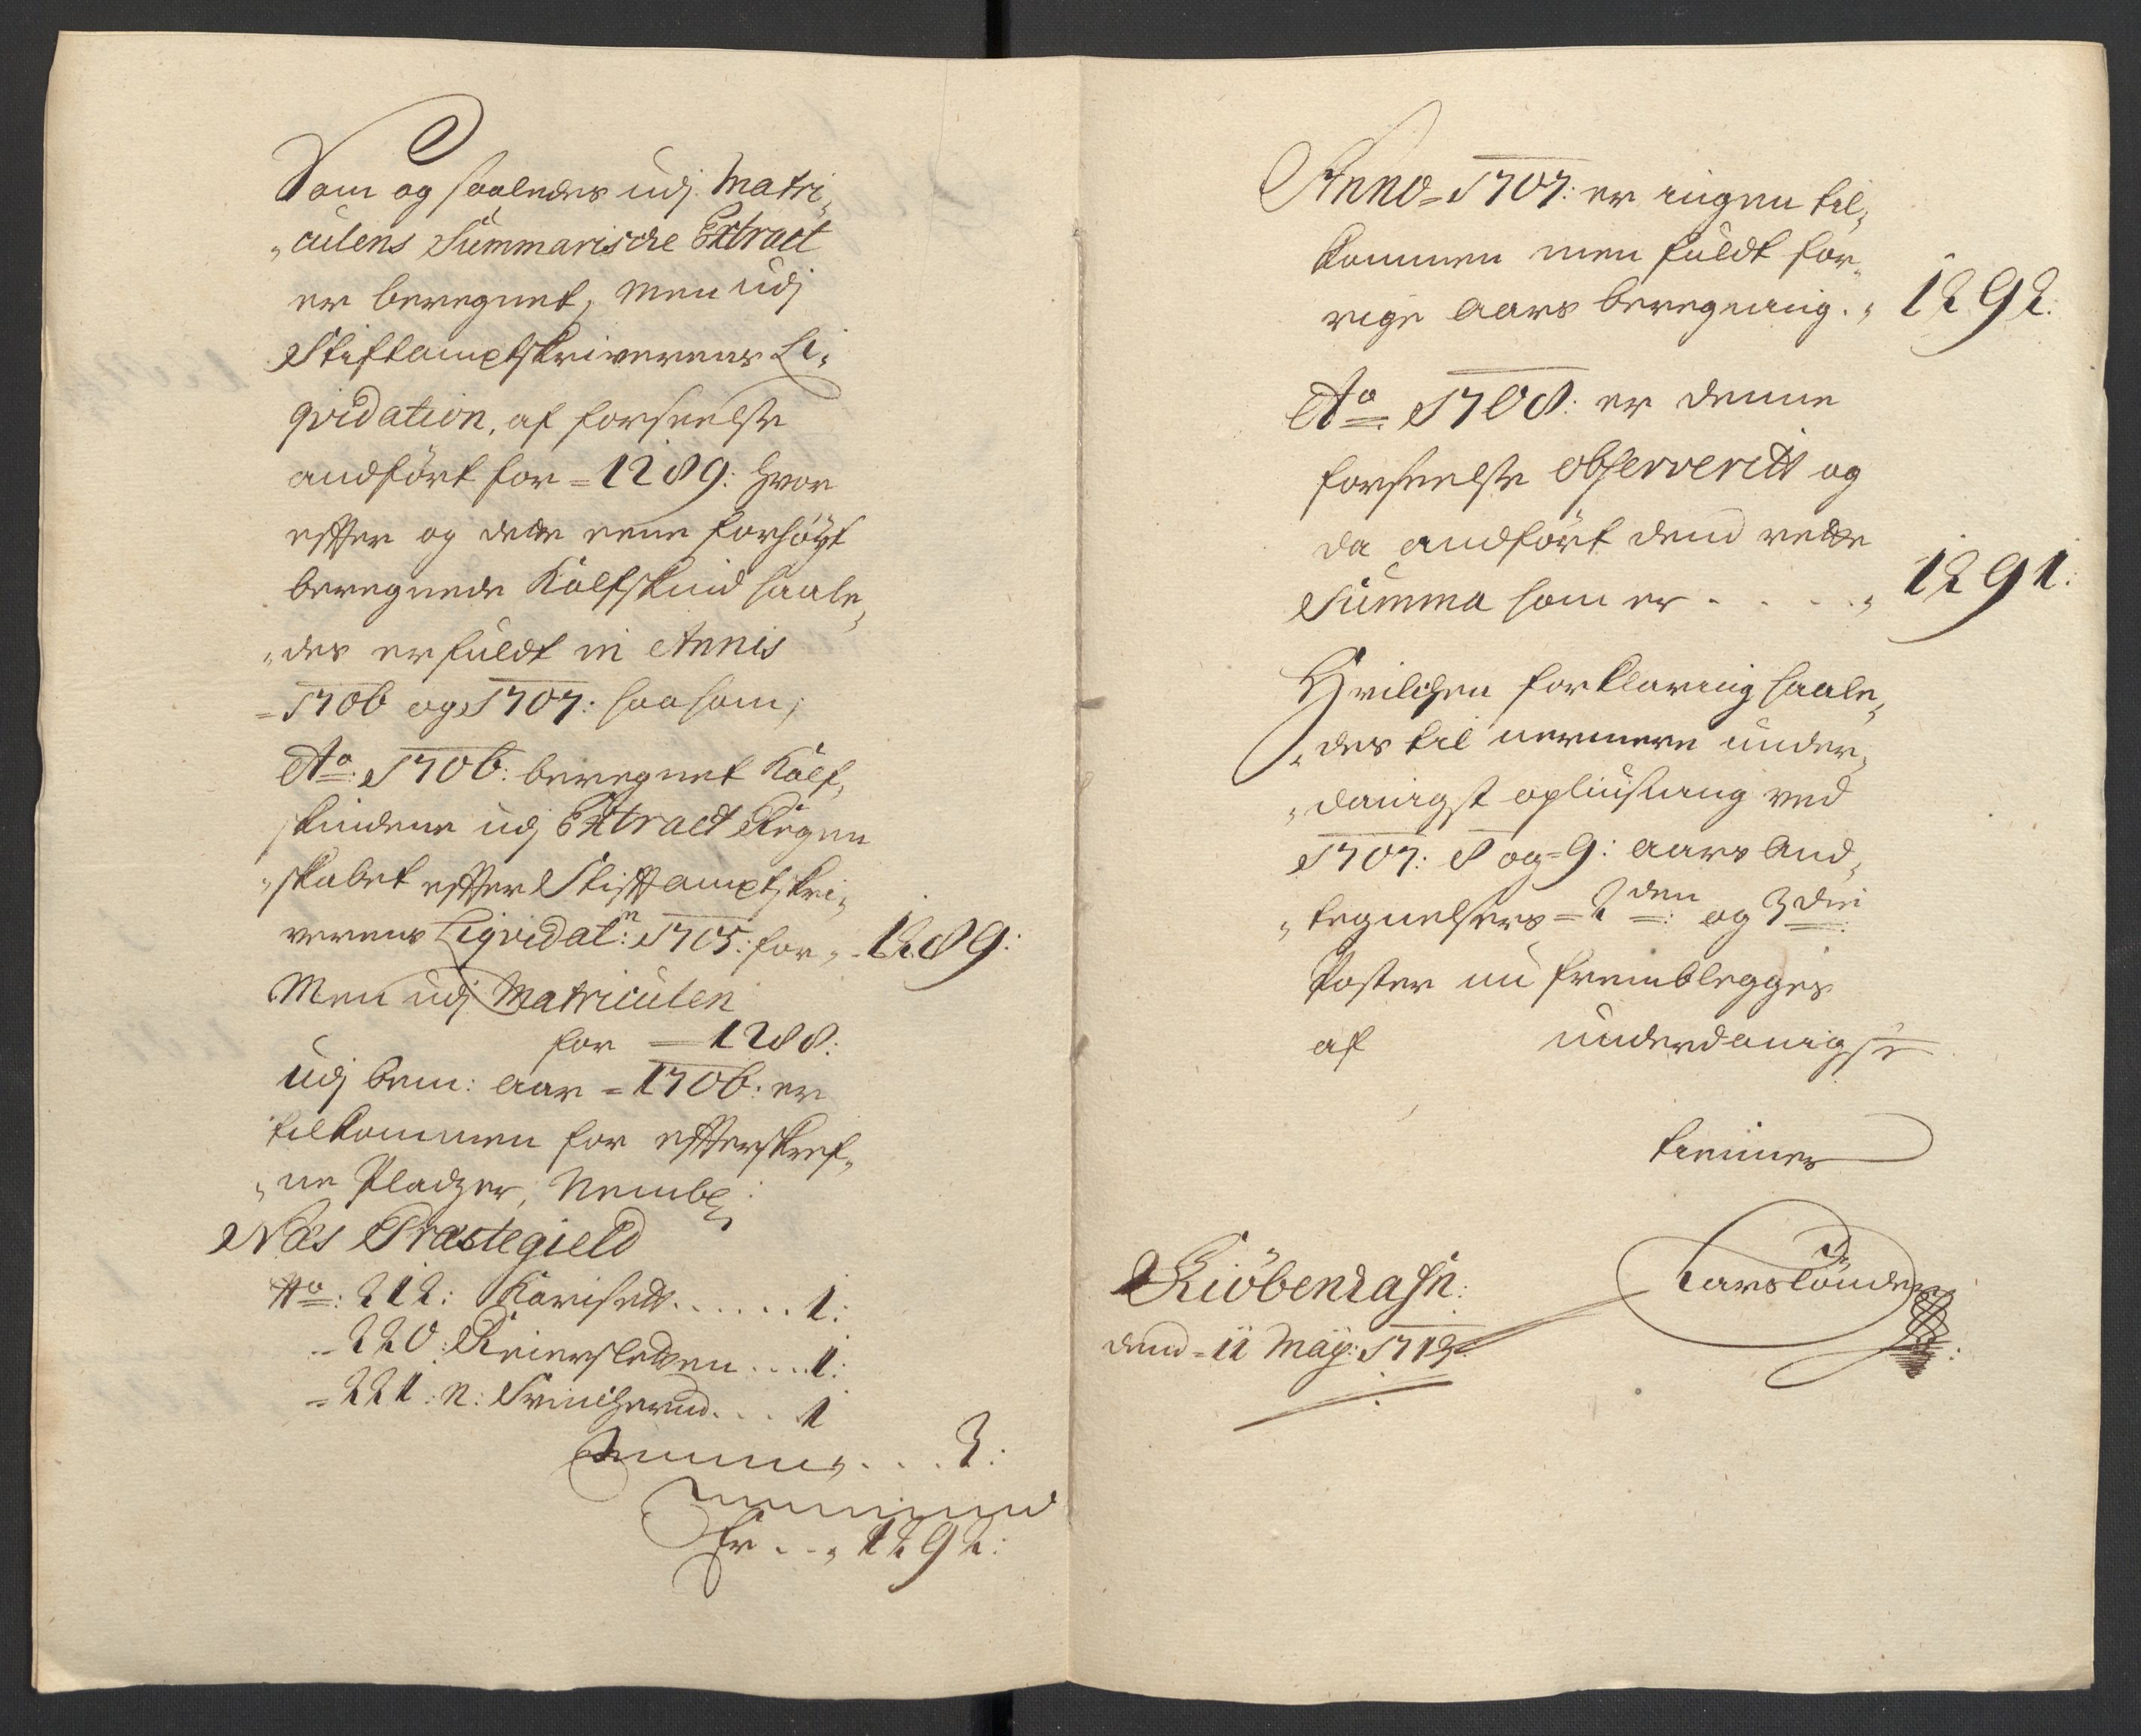 Som og saaledes udj Matri,
„culens Summarische Extract
er beregnet, men udj
Stiftamptskriverens Li,
qvidation, af forseelse
andført for = 1289: hvor
effter og dette eene forhøyt
beregnede Kalfskind saale,
„des er fuldt in Annis
= 1706 og 1707: saasom,
Ao: 1706: beregnet Kalf,
skindene udj Extract Regen
„skabet effter Stifftamptskri,
verens Liqvidat:n 1705: for „ 1289:
Men udj Matriculen
for = 1288:
Udj bem: aar = 1706: er
tilkommen for effterskref,
„ne Pladzer, Nembl:
Næs Præstegield
No: 212: Karisett ...... 1:
- 220: Reiersletten .... 1:
= 221: n: ... 1
Summa „ ... 3:
Er .. „ 1292:
Anno = 1707: er ingen til,
kommen men fuldt for,
rige aars beregning. „ 1292:
Ao 1708: er denne
forseelse observeritt og
da andført dend rette
Summa som er . . . . „ 1291:
Hvilchen forklaring saale,
„des til nermere under,
„danigst opliusning ved
1707: 8 og = 9: aars And,
„tegnelsers = 2den: og 3die:
Poster nu fremblegges
af underdanigste
tienner
Kiöbenhafn:
dend = 11 Maÿ: 1713